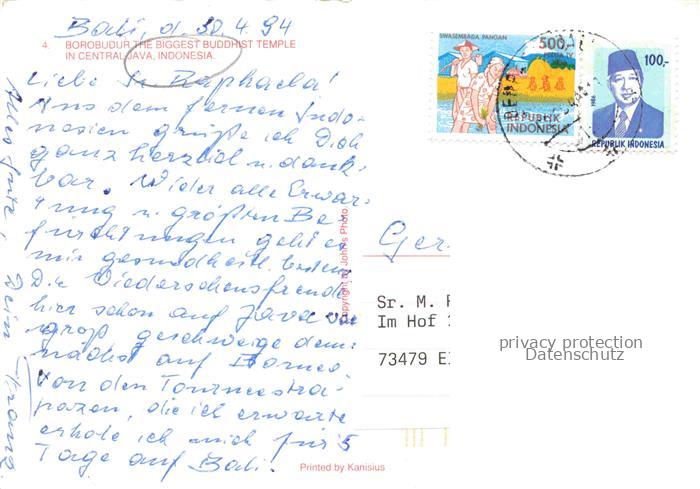 Bali, d 30.4.94
4. BOROBUDUR THE BIGGEST BUDDHIST TEMPLE
IN CENTRAL JAVA, INDONESIA.
Liebe Sr Raphaela!
Aus dem fernen Indo-
nesien grüße ich Dich
ganz herzlich u. dank-
bar. Wider alle Erwar-
tung u. größten Be-
fürchtungen geht es
mir gesundheitl. bestens
Die Wiedersehensfreude
hier schon auf Java war
groß geschweige dem-
nächst auf Borneo.
Von den Tourneestra-
pazen, die ich erwarte
erhole ich mich für 5
Tage auf Bali.
Alles Gute, Dein Franz
Copyright by Johns Photo
Printed by Kanisius
SWASEMBADA PANGAN
500,-
PELITA IV
REPUBLIK
INDONESIA
100,-
1986
REPUBLIK INDONESIA
Ger.
Sr. M.
Im Hof
73479
privacy protection
Datenschutz